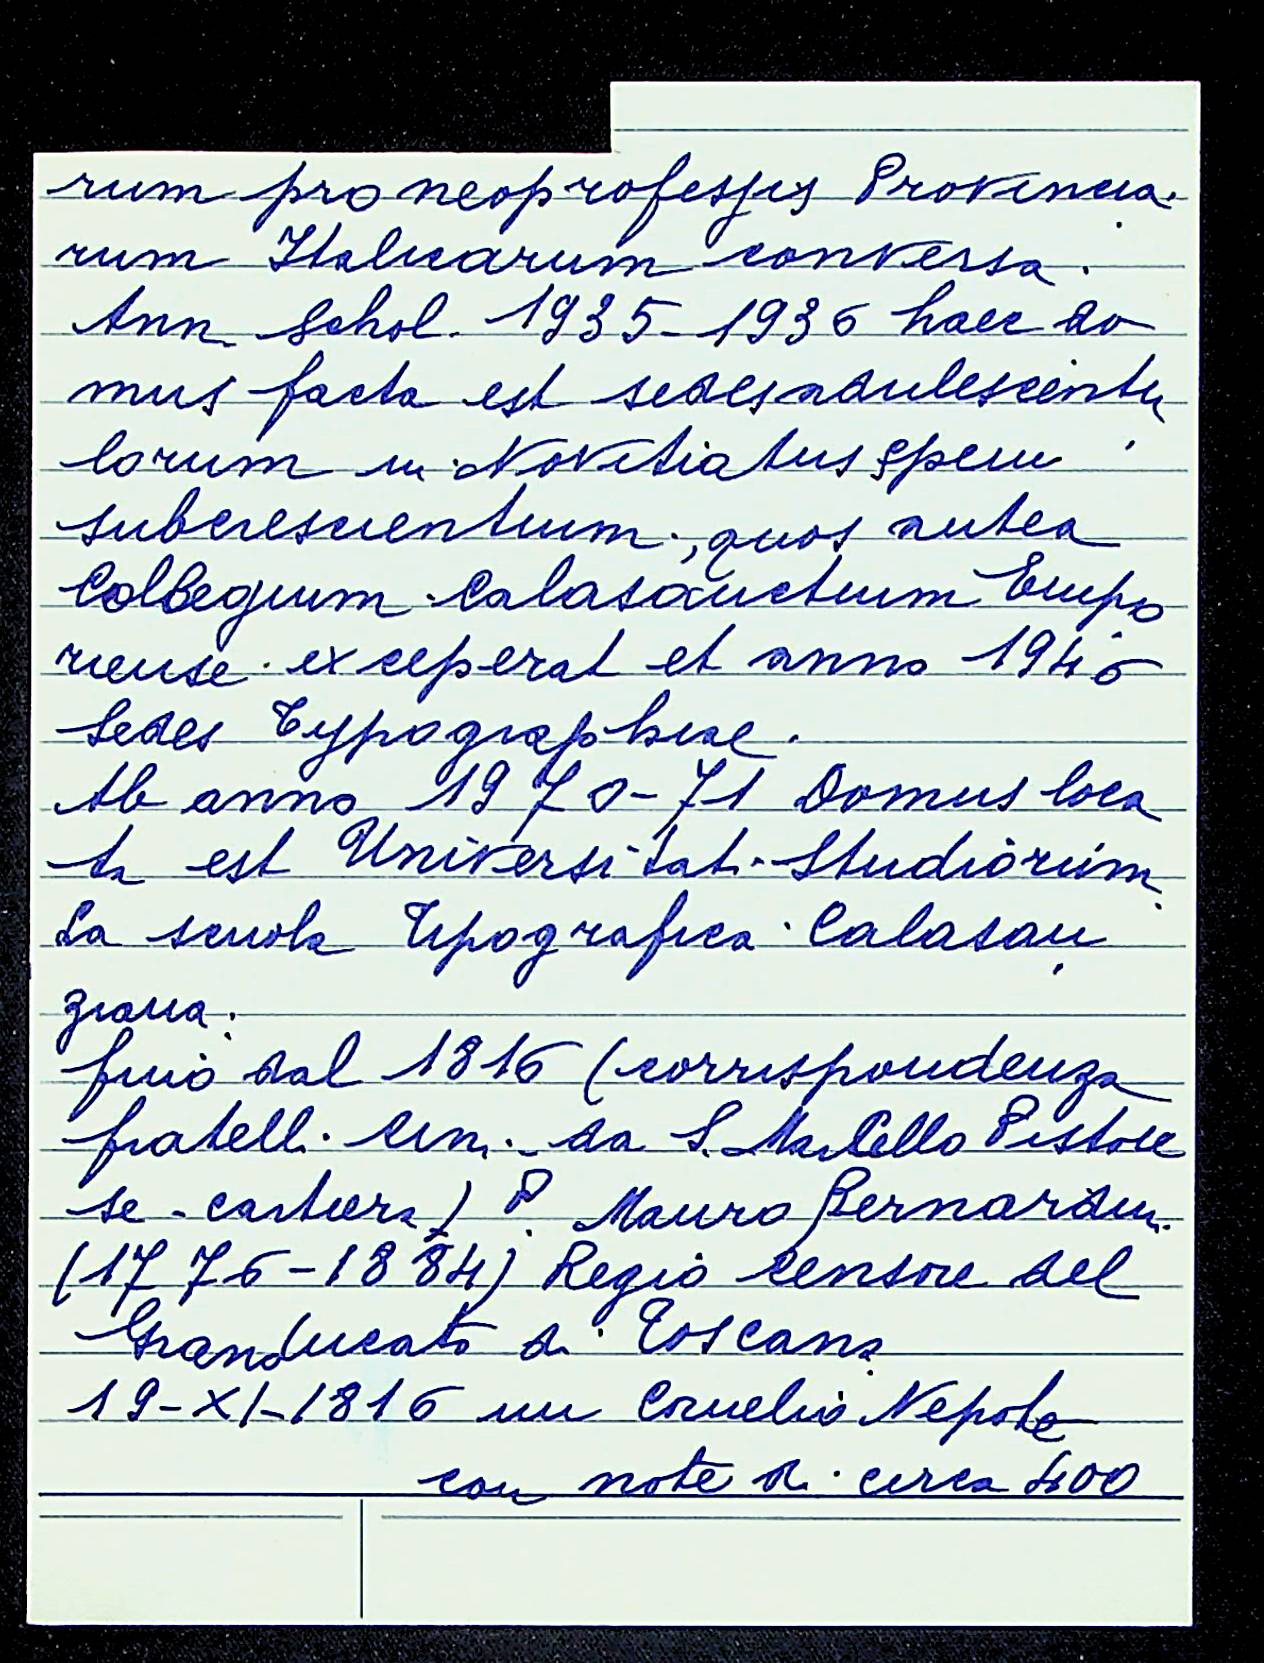 rum pro neoprofessis Provincia-
rum Italicarum conversa.
Ann. Schol. 1935-1936 haec do
mus facta est sedes adulescentu
lorum in Novitiatus spem
subcrescentium, quos antea
Collegium Calasanctium Empo
riense exceperat et anno 1946
Sedes Typographiae.
Ab anno 1970-71 Domus loca
ta est Universitati Studiorum.
La scuola Tipografica Calasan
ziana.
fino dal 1816 (corrispondenza
fratelli Cini da S. Marcello Pistoie
se - cartiera) P. Mauro Bernardini
(1776-1884) Regio Censore del
Granducato di Toscana
19-XI-1816 un Cornelio Nepote
con note di circa 400